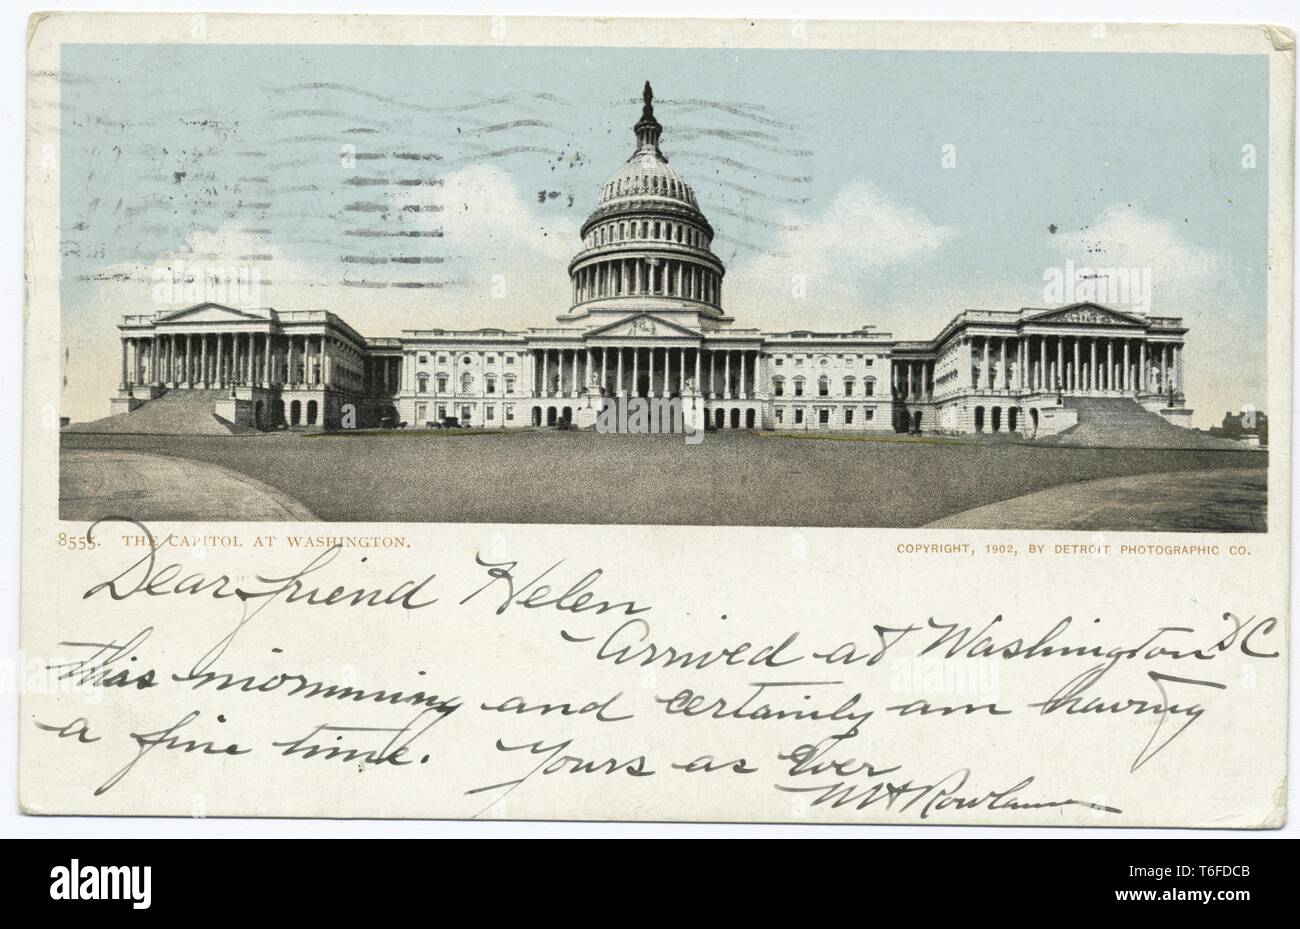 8555. THE CAPITOL AT WASHINGTON.
COPYRIGHT, 1902, BY DETROIT PHOTOGRAPHIC CO.
Dear friend Helen
Arrived at Washington DC
this mornning and certainly am having
a fine time. Yours as Ever
a alamy
alamy
Image ID: T6FDCB
www.alamy.com